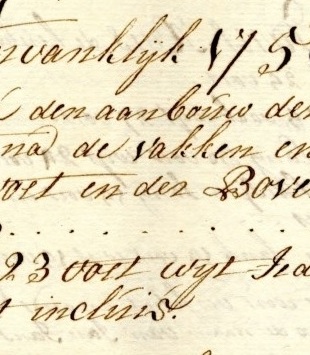 nvanklijk 175
den aanbouw der
na de vakken en
voet en den Bove
. . . . . . . .
23 voet wyt Ied
t inclüis.